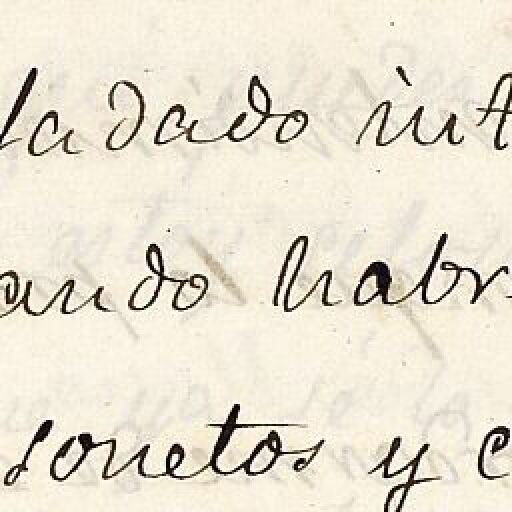 ladado int
ando habr
sonetos y c